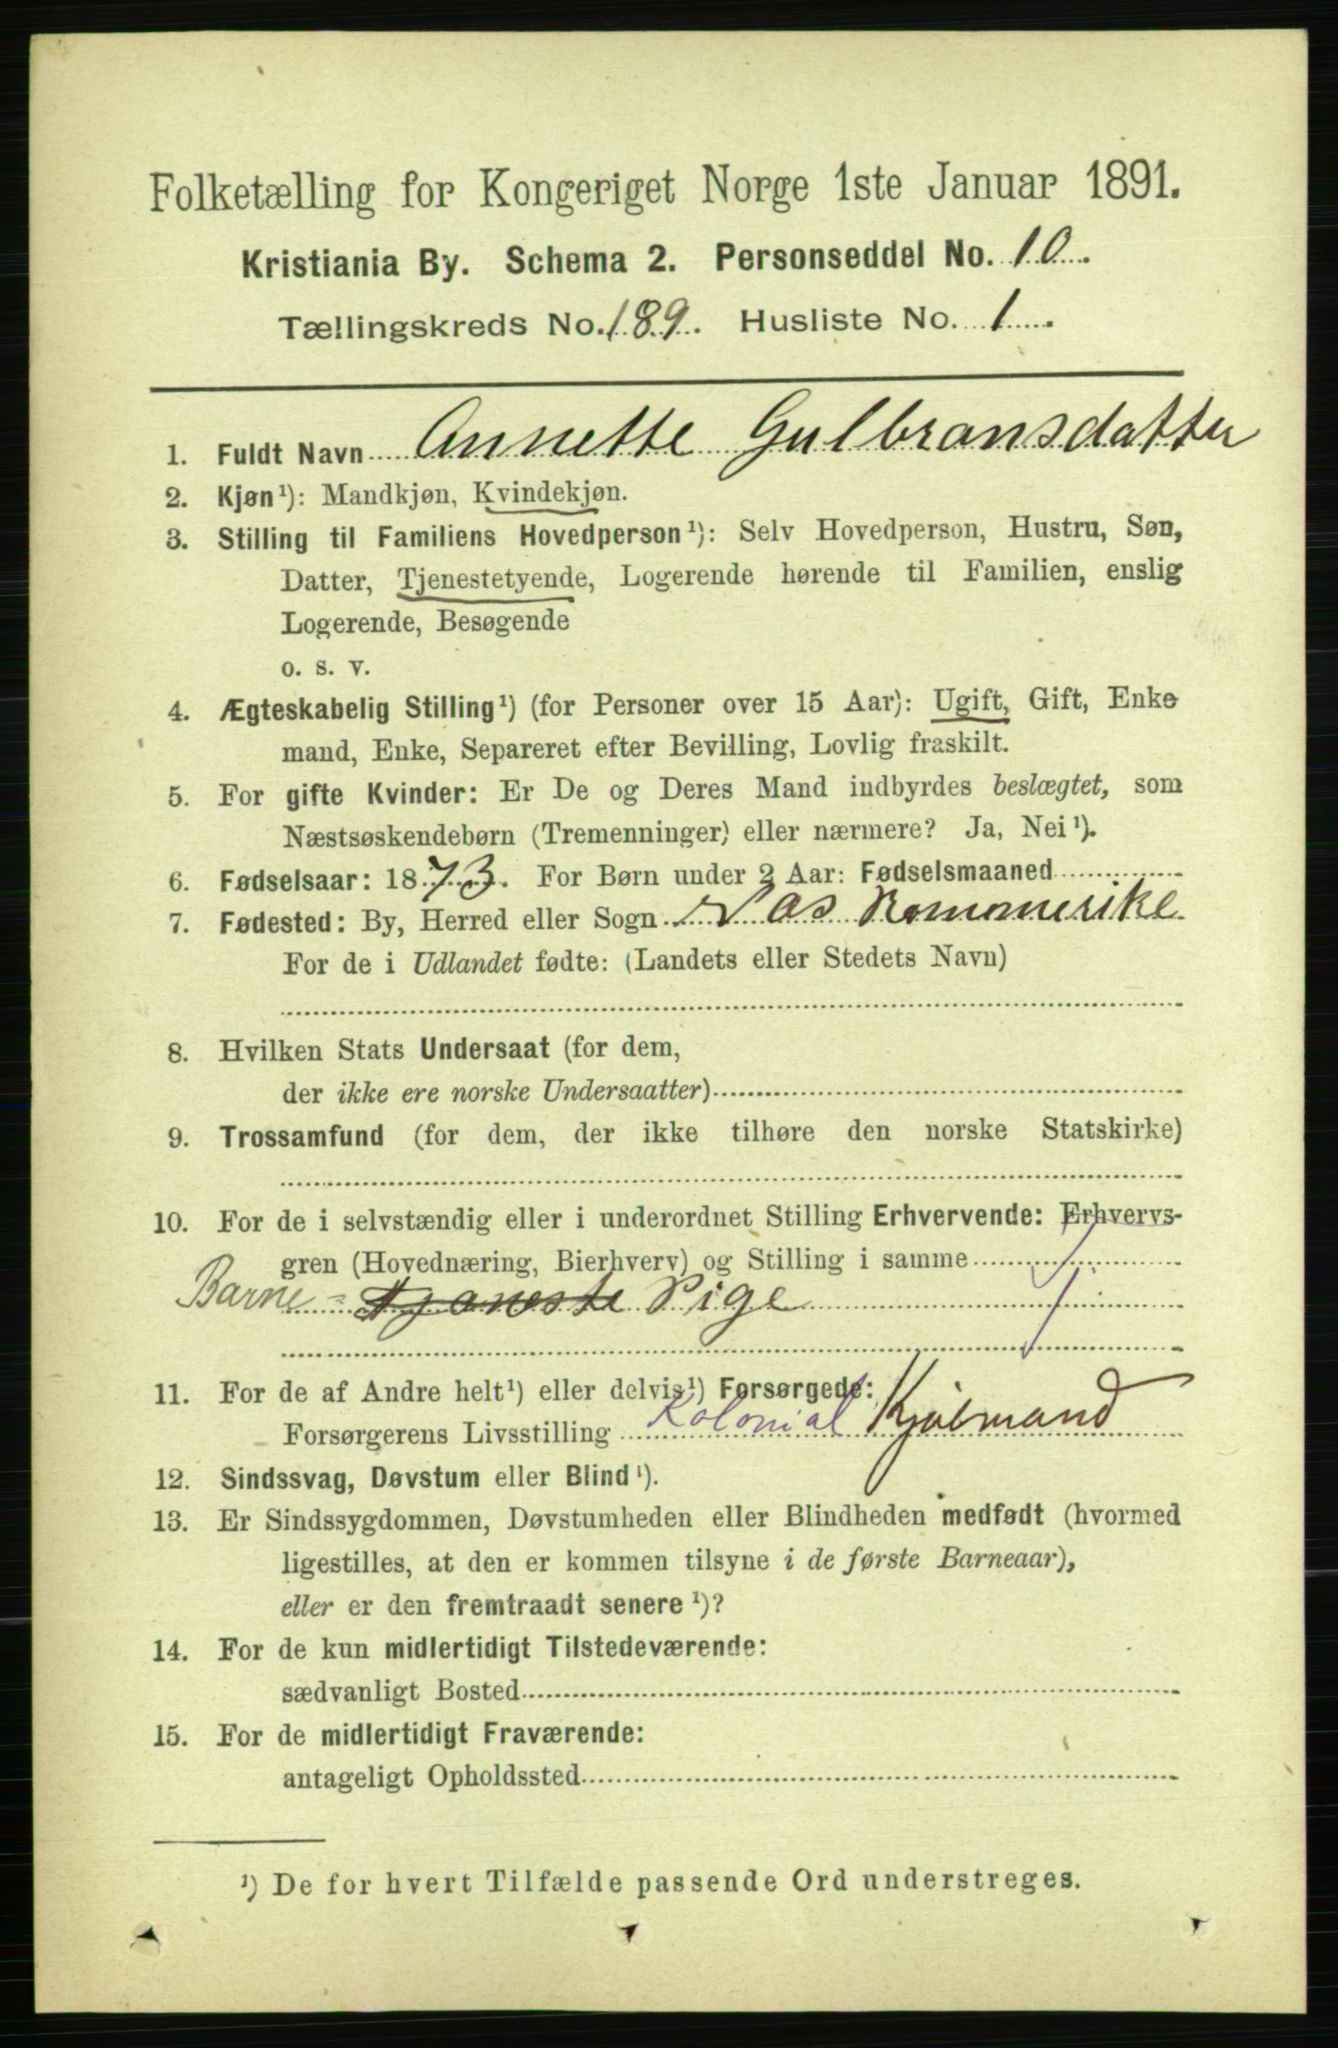 Folketælling for Kongeriget Norge 1ste Januar 1891.
Kristiania By. Schema 2. Personseddel No. 10.
Tællingskreds No. 189. Husliste No. 1.
1. Fuldt Navn Annette Gulbransdatter
2. Kjøn¹): Mandkjøn, Kvindekjøn.
3. Stilling til Familiens Hovedperson¹): Selv Hovedperson, Hustru, Søn,
Datter, Tjenestetyende, Logerende hørende til Familien, enslig
Logerende, Besøgende
o. s. v.
4. Ægteskabelig Stilling¹) (for Personer over 15 Aar): Ugift, Gift, Enke
mand, Enke, Separeret efter Bevilling, Lovlig fraskilt.
5. For gifte Kvinder: Er De og Deres Mand indbyrdes beslægtet, som
Næstsøskendebørn (Tremenninger) eller nærmere? Ja, Nei¹).
6. Fødselsaar: 1873. For Børn under 2 Aar: Fødselsmaaned
7. Fødested: By, Herred eller Sogn Nas Romomerike
For de i Udlandet fødte: (Landets eller Stedets Navn)
8. Hvilken Stats Undersaat (for dem,
der ikke ere norske Undersaatter)
9. Trossamfund (for dem, der ikke tilhøre den norske Statskirke)
10. For de i selvstændig eller i underordnet Stilling Erhvervende: Erhvervs-
gren (Hovednæring, Bierhverv) og Stilling i samme
Barne- Tjaneste Pige
11. For de af Andre helt¹) eller delvis¹) Forsørgede:
Forsørgerens Livsstilling Kolonial Kjøbmand
12. Sindssvag, Døvstum eller Blind¹).
13. Er Sindssygdommen, Døvstumheden eller Blindheden medfødt (hvormed
ligestilles, at den er kommen tilsyne i de første Barneaar),
eller er den fremtraadt senere¹)?
14. For de kun midlertidigt Tilstedeværende:
sædvanligt Bosted
15. For de midlertidigt Fraværende:
antageligt Opholdssted
¹) De for hvert Tilfælde passende Ord understreges.